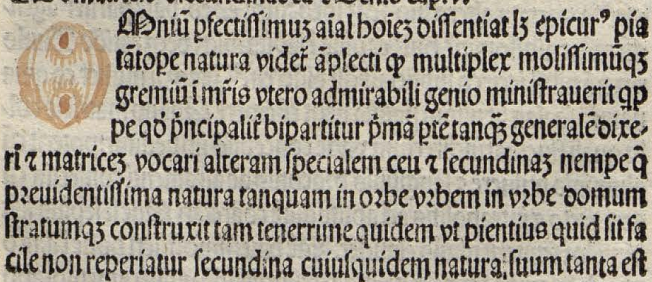 OMniū ꝑfectissimuꝫ aīal hoīeꝫ dissentiat lꝫ epicurꝰ pia
tātope natura videt᷑ āplecti ꝙ multiplex molissimūqꝫ
gremiū ī mr̄is vtero admirabili genio ministrauerit qꝓ
pe qd̓ p̄ncipalit᷑ bipartitur p̄mā ꝑtē tanqꝫ̄ generalē dixe-
rī ⁊ matriceꝫ vocari alteram specialem ceu ⁊ secundinaꝫ nempe q̄
preuidentissima natura tanquam in orbe vrbem in vrbe domum
stratumqꝫ construxit tam tenerrime quidem vt pientius quid sit fa
cile non reperiatur secundina cuiusquidem natura: suum tanta est